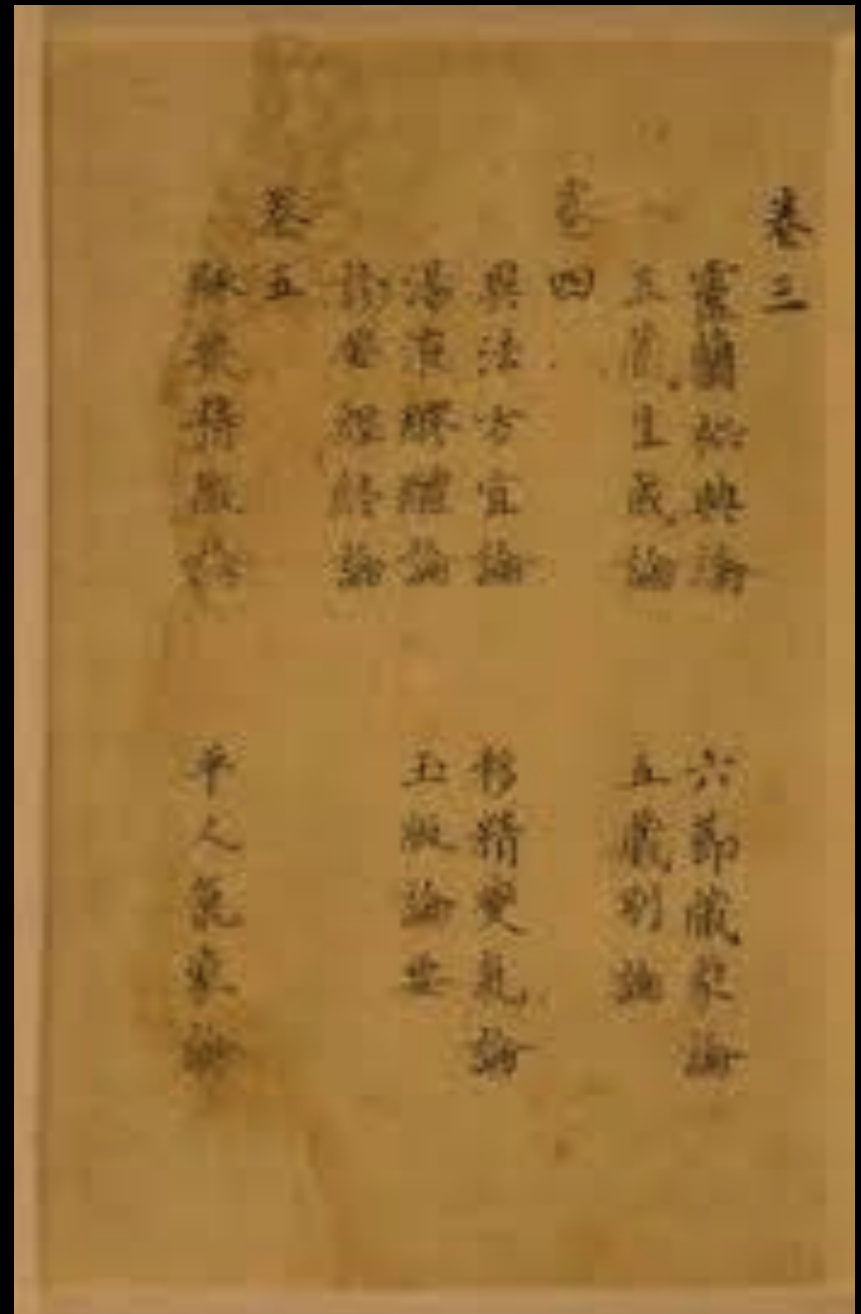 卷三
靈蘭秘典論 六節藏象論
五藏生成論 五藏別論
卷四
異法方宜論 移精變氣論
湯液醪醴論 玉版論要
診要經終論
卷五
脉要精微論 平人氣象論